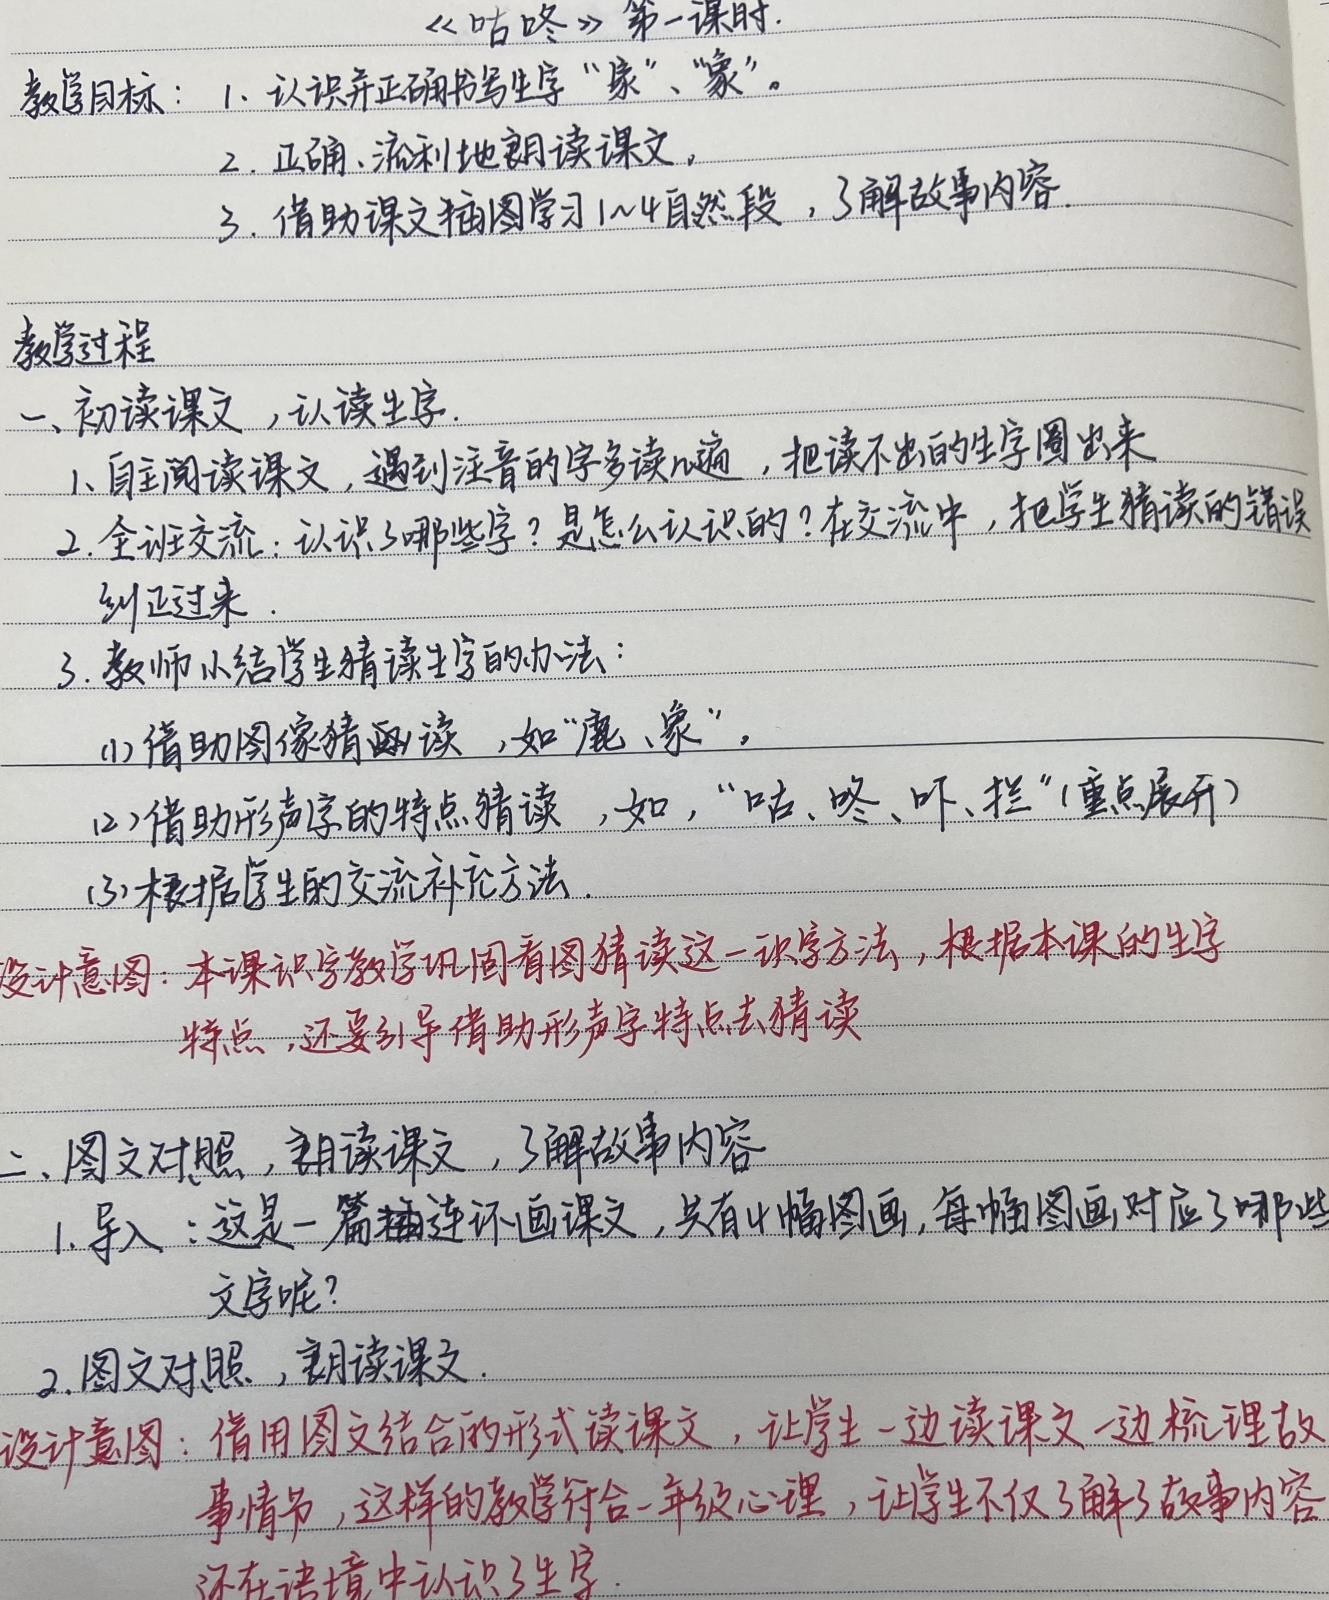 《咕咚》第一课时.
教学目标: 1、认识并正确书写生字“家”、“象”。
2. 正确、流利地朗读课文,
3. 借助课文插图学习1~4自然段,了解故事内容.
教学过程
一、初读课文,认读生字.
1、自主阅读课文,遇到注音的字多读几遍,把读不出的生字圈出来
2. 全班交流:认识了哪些字?是怎么认识的?在交流中,把学生猜读的错误
纠正过来.
3. 教师小结学生猜读生字的办法:
(1)借助图像猜读,如“鹿、象”。
(2)借助形声字的特点猜读,如,“咕、咚、吓、拦”(重点展开)
(3)根据学生的交流补充方法.
设计意图:本课识字教学巩固看图猜读这一识字方法,根据本课的生字
特点,还要引导借助形声字特点去猜读
二、图文对照,朗读课文,了解故事内容
1. 导入:这是一篇连环画课文,共有4幅图画,每幅图画对应了哪些
文字呢?
2. 图文对照,朗读课文.
设计意图:借用图文结合的形式读课文,让学生一边读课文一边梳理故
事情节,这样的教学符合一年级心理,让学生不仅了解了故事内容
还在语境中认识了生字.